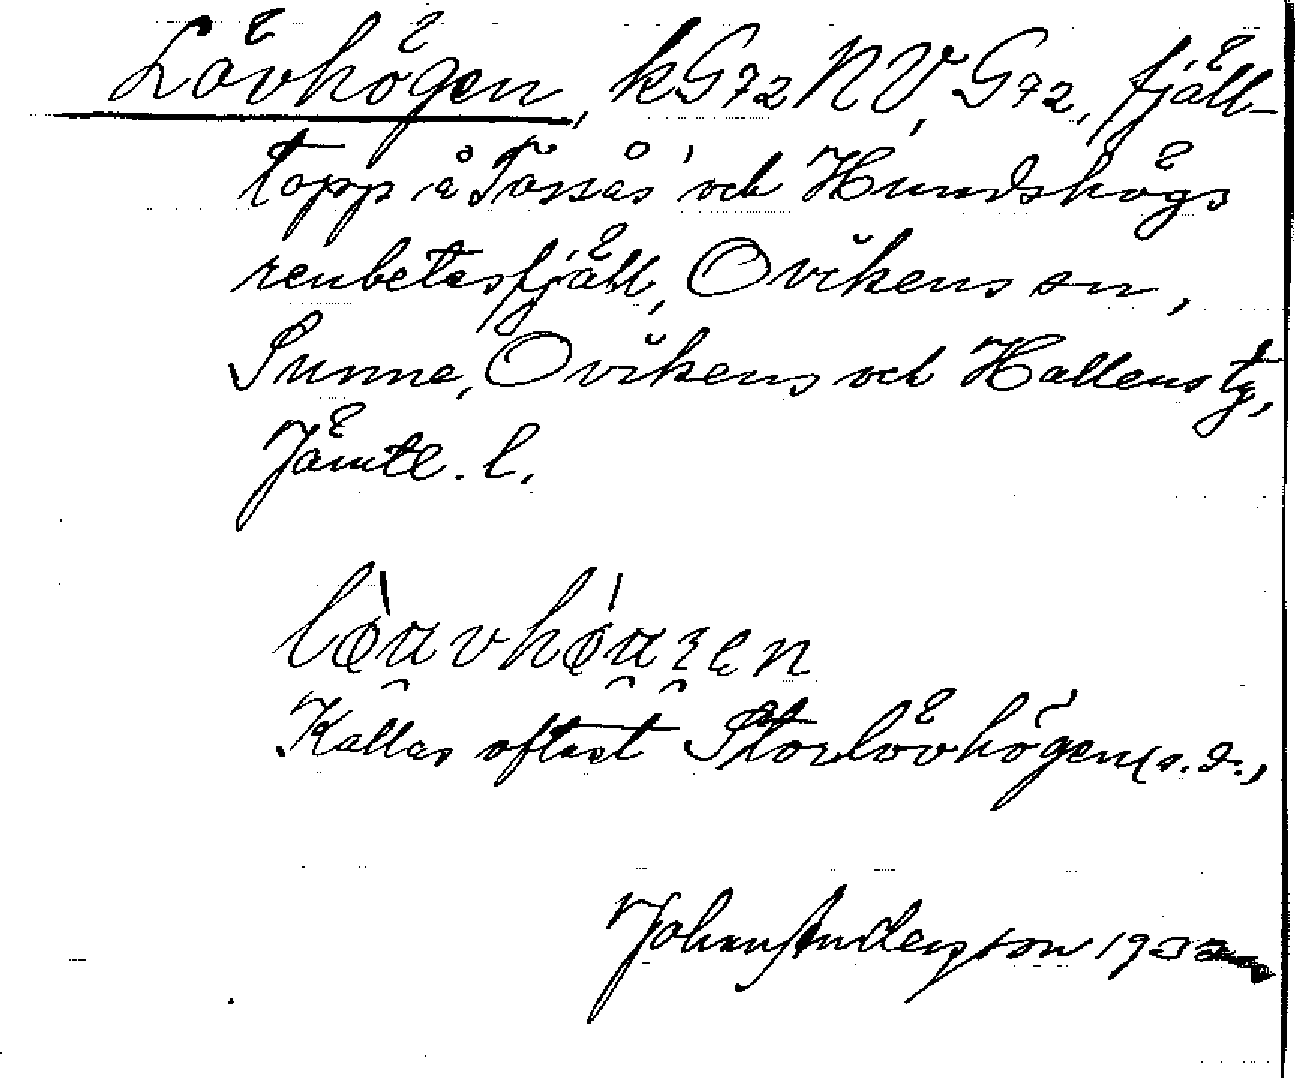 Lövhögen, kG72NV, G72, fjäll-
topp å Tossås' och Hundshögs
renbetesfjäll, Ovikens sn,
Sunne, Ovikens och Hallens tg,
Jämtl. l.
Kallas oftast Storlövhögen (s.d.,
Johan Anderson 1933